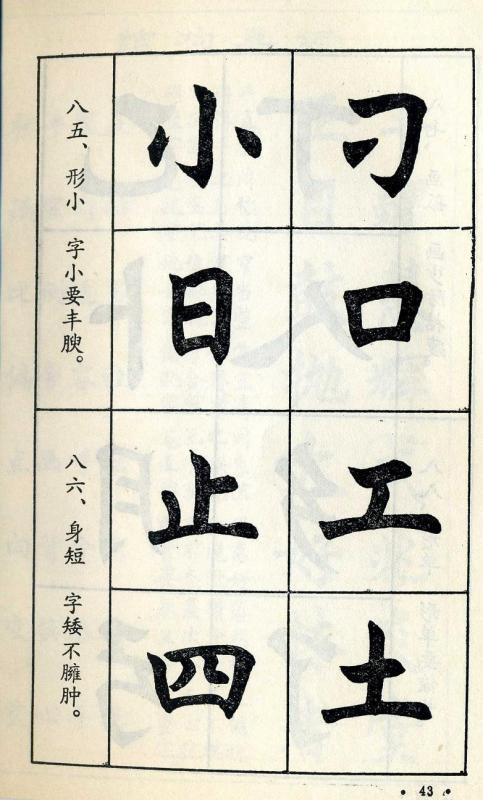 刁口工土
小日止四
八五、形小 字小要丰腴。
八六、身短 字矮不臃肿。
• 43 •